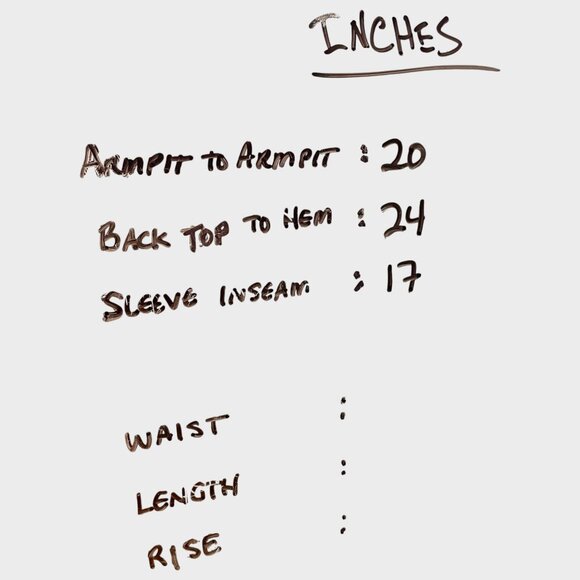 INCHES
ARMPIT TO ARMPIT : 20
BACK TOP TO HEM : 24
SLEEVE INSEAM : 17
WAIST :
LENGTH :
RISE :